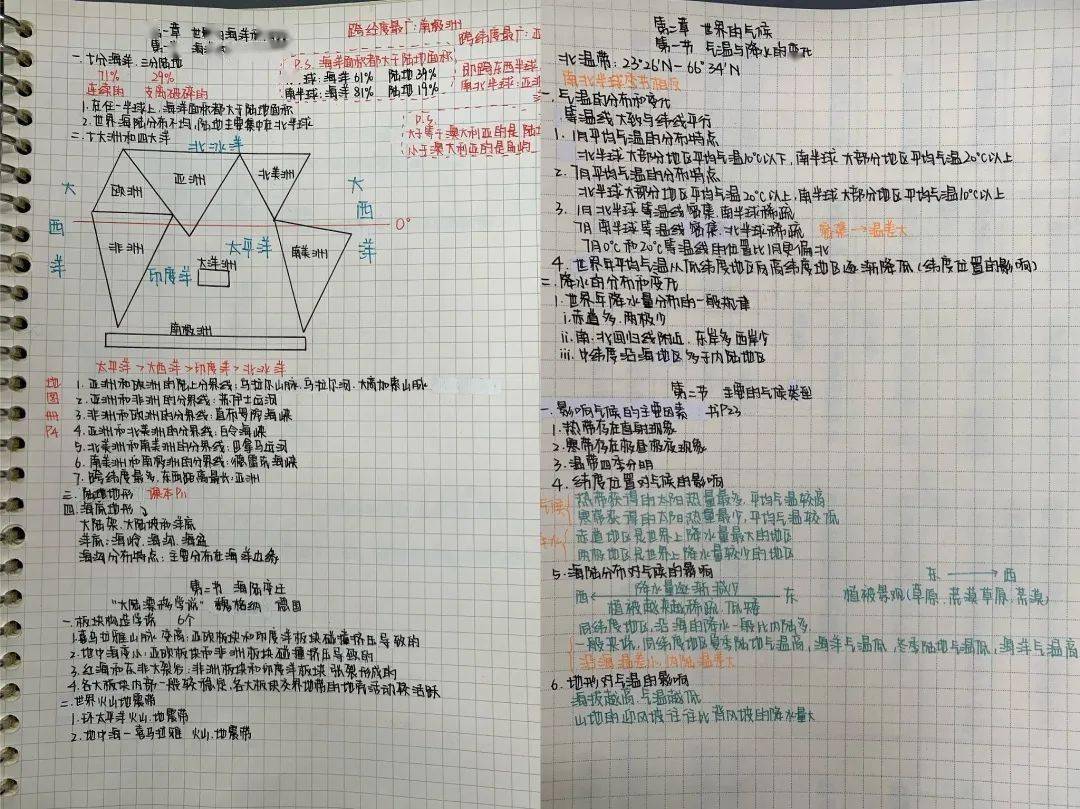 跨经度最广:南极洲
跨纬度最广:亚
一章 世 海洋
一.十分海洋,三分陆地
71% 29%
连续的 支离破碎的
P.S. 海洋面积都大于陆地面积
球:海洋61% 陆地39%
南半球:海洋81% 陆地19%
即跨东西半球
南北半球:亚洲
1.在任一半球上,海洋面积都大于陆地面积
2.世界海陆分布不均,陆地主要集中在北半球
P.S.
大于等于澳大利亚的是陆
小于澳大利亚的是岛屿
二.七大洲和四大洋
北冰洋
欧洲
亚洲
北美洲
大西洋
大西洋
0°
非洲
太平洋
南美洲
大洋洲
印度洋
南极洲
太平洋>大西洋>印度洋>北冰洋
地图册P4
1.亚洲和欧洲的陆上分界线:乌拉尔山脉.乌拉尔河.大高加索山脉
2.亚洲和非洲的分界线:苏伊士运河
3.非洲和欧洲的分界线:直布罗陀海峡
4.亚洲和北美洲的分界线:白令海峡
5.北美洲和南美洲的分界线:巴拿马运河
6.南美洲和南极洲的分界线:德雷克海峡
7.跨纬度最多,东西距离最长:亚洲
三.陆地地形 课本P11
四.海底地形
大陆架.大陆坡和洋底
洋底:海岭.海沟.海盆
海沟分布特点:主要分布在海洋边缘
第二节 海陆变迁
“大陆漂移学说” 魏格纳 德国
一.板块构造学说 6个
1.喜马拉雅山脉变高:亚欧板块和印度洋板块碰撞挤压导致的
2.地中海变小:亚欧板块和非洲板块碰撞挤压导致的
3.红海和东非大裂谷:非洲板块和印度洋板块张裂形成的
4.各大板块内部一般较稳定,各大板块交界地带的地壳活动较活跃
二.世界火山地震带
1.环太平洋火山.地震带
2.地中海—喜马拉雅 火山.地震带
第二章 世界的气候
第一节 气温与降水的变化
北温带:23°26′N-66°34′N
南北半球季节相反
一.气温的分布和变化
等温线大致与纬线平行
1.1月平均气温的分布特点
北半球大部分地区平均气温10℃以下,南半球大部分地区平均气温20℃以上
2.7月平均气温的分布特点
北半球大部分地区平均气温20℃以上,南半球大部分地区平均气温10℃以上
3.1月北半球等温线密集.南半球稀疏
7月南半球等温线密集.北半球稀疏 密集→温差大
7月0℃和20℃等温线的位置比1月更偏北
4.世界年平均气温从低纬度地区向高纬度地区逐渐降低(纬度位置的影响)
二.降水的分布和变化
1.世界年降水量分布的一般规律
i.赤道多.两极少
ii.南.北回归线附近.东岸多西岸少
iii.中纬度沿海地区多于内陆地区
第二节 主要的气候类型
一.影响气候的主要因素 书P23
1.热带存在直射现象
2.寒带存在极昼极夜现象
3.温带四季分明
4.纬度位置对气候的影响
气候
热带获得的太阳热量最多,平均气温较高
寒带获得的太阳热量最少,平均气温较低
降水
赤道地区是世界上降水量最大的地区
两极地区是世界上降水量较少的地区
5.海陆分布对气候的影响
降水量逐渐减少
西 东
植被越来越稀疏.低矮
东 西
植被景观(草原.荒漠草原.荒漠)
同纬度地区,沿海的降水一般比内陆多
一般来说,同纬度地区夏季陆地气温高,海洋气温低,冬季陆地气温低,海洋气温高
沿海温差小,内陆温差大
6.地形对气温的影响
海拔越高,气温越低
山地的迎风坡往往比背风坡的降水量大